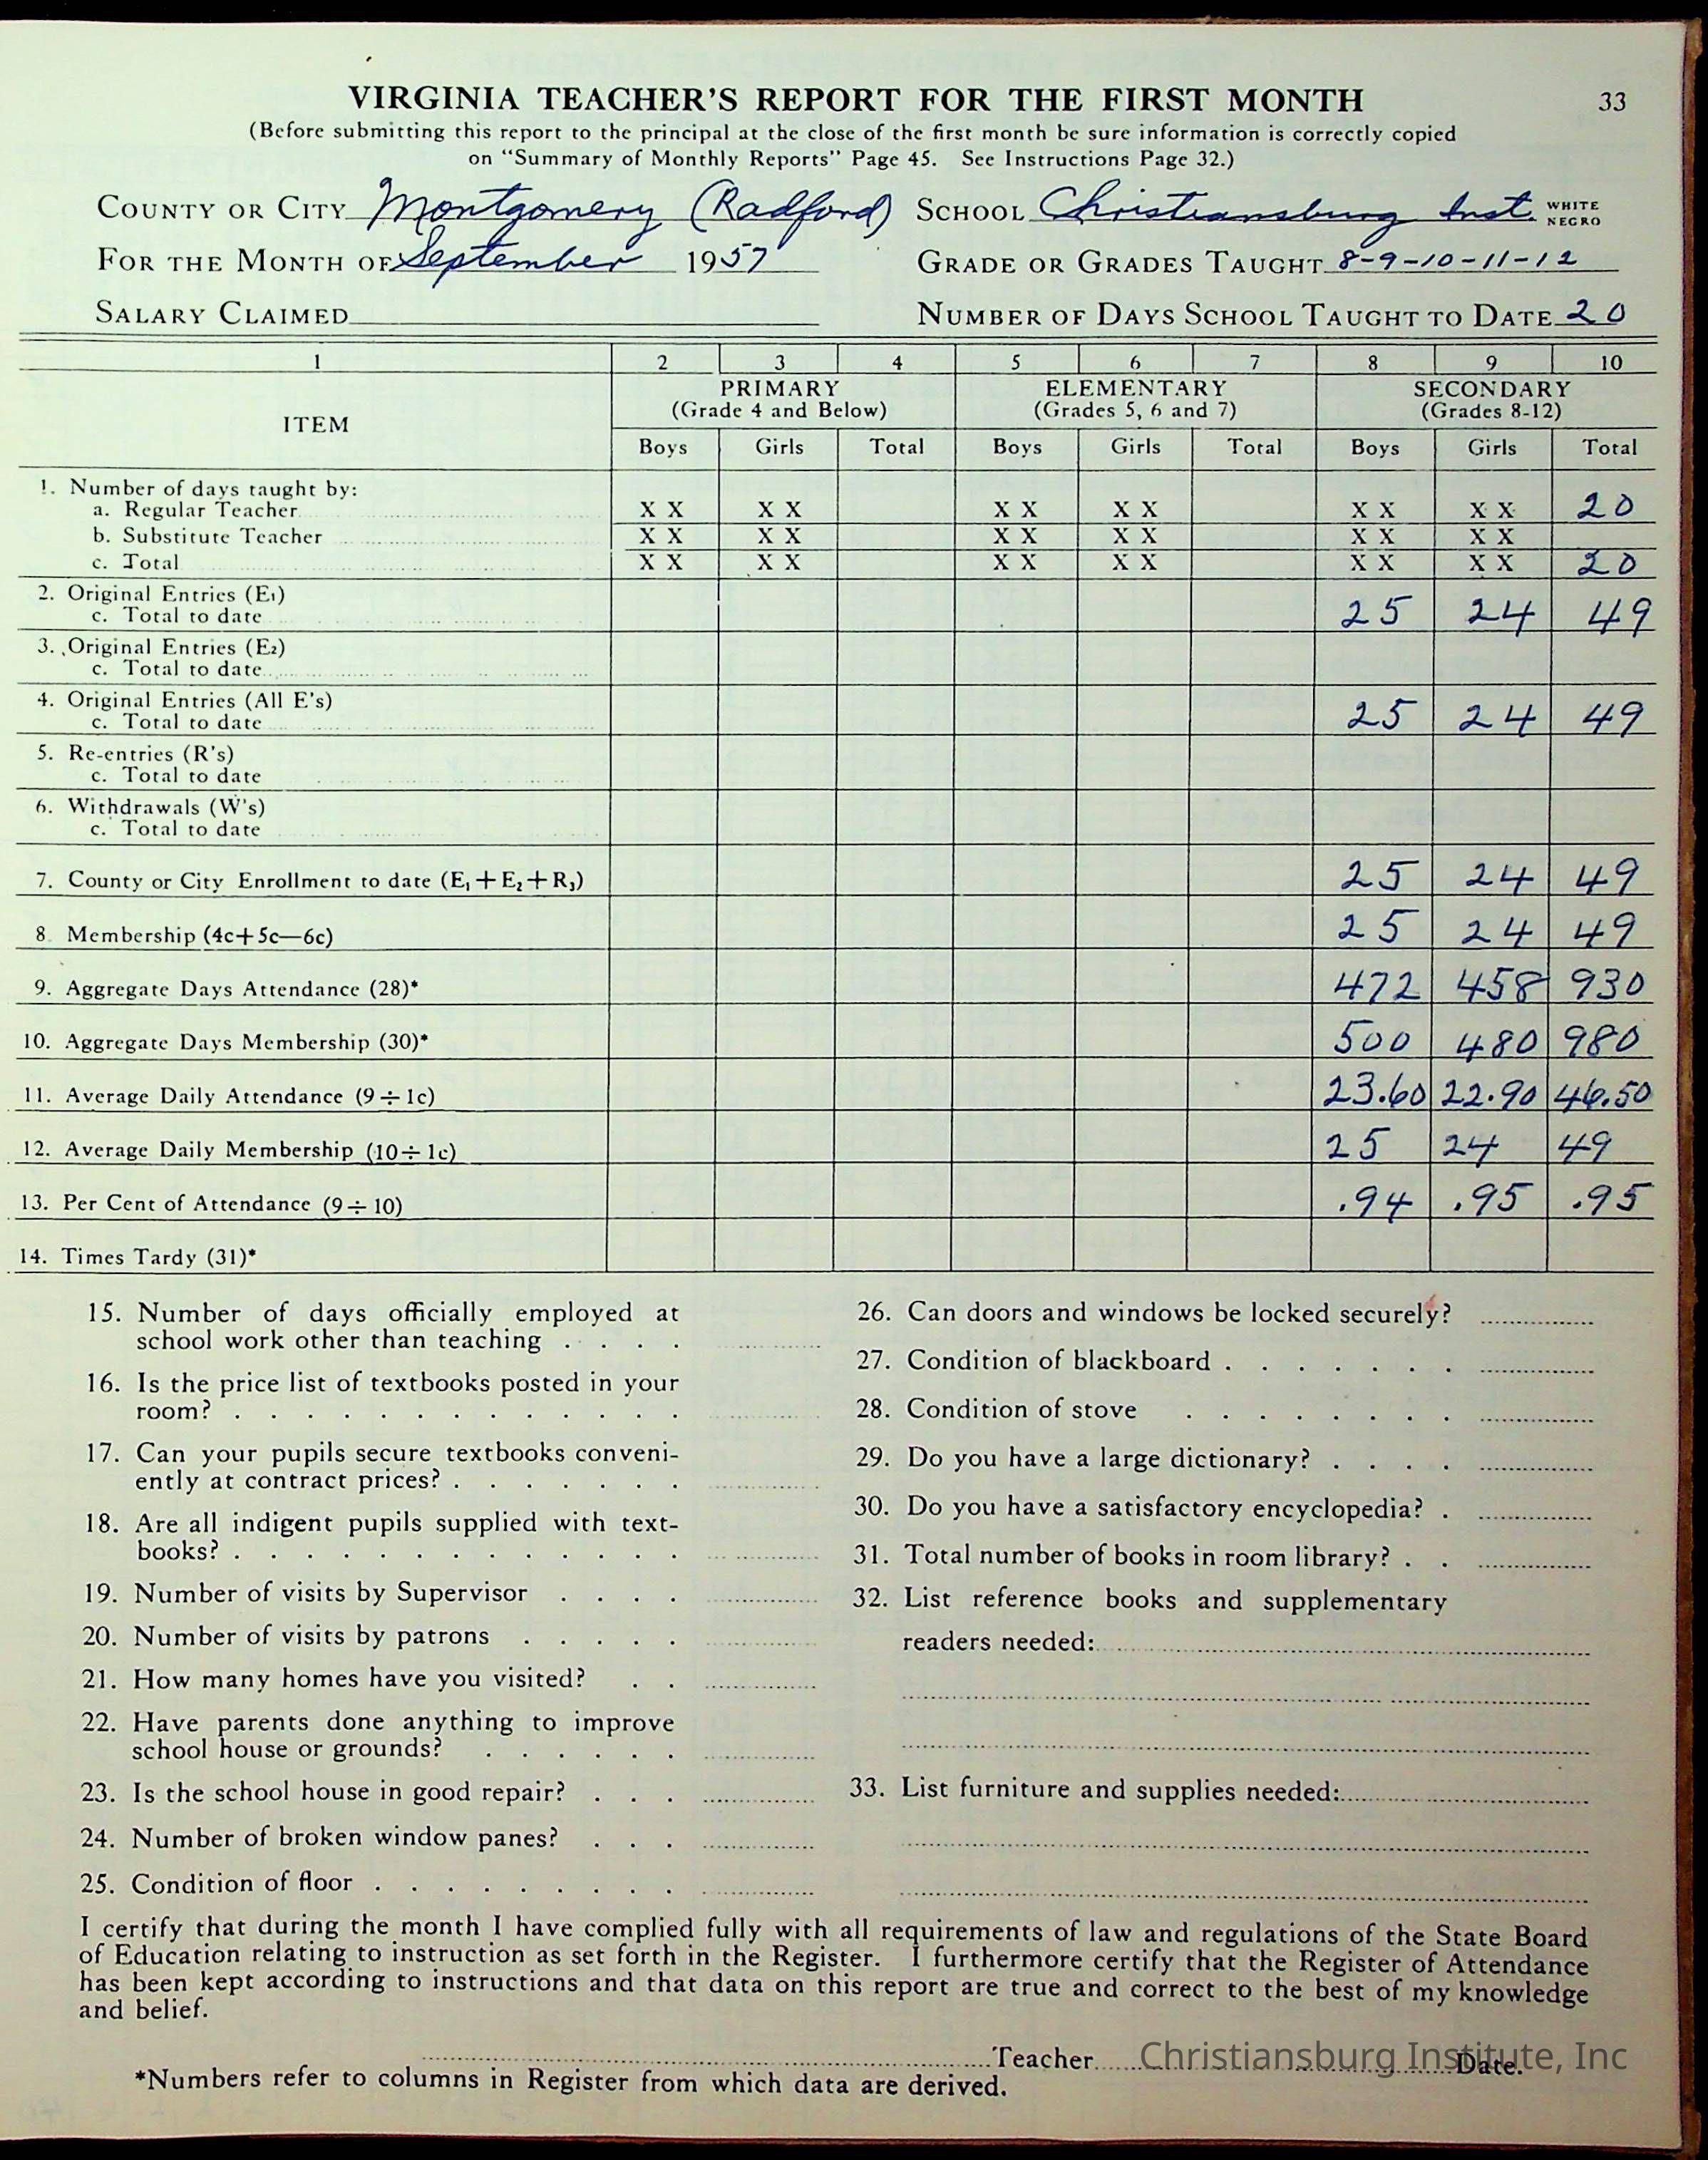 VIRGINIA TEACHER'S REPORT FOR THE FIRST MONTH 33
(Before submitting this report to the principal at the close of the first month be sure information is correctly copied
on "Summary of Monthly Reports" Page 45. See Instructions Page 32.)
COUNTY OR CITY Montgomery (Radford) SCHOOL Christiansburg Inst. WHITE NEGRO
FOR THE MONTH OF September 1957 GRADE OR GRADES TAUGHT 8-9-10-11-12
SALARY CLAIMED NUMBER OF DAYS SCHOOL TAUGHT TO DATE 20
1 2 3 4 5 6 7 8 9 10
ITEM PRIMARY ELEMENTARY SECONDARY
(Grade 4 and Below) (Grades 5, 6 and 7) (Grades 8-12)
Boys Girls Total Boys Girls Total Boys Girls Total
1. Number of days taught by:
a. Regular Teacher X X X X X X X X X X X X 20
b. Substitute Teacher X X X X X X X X X X X X
c. Total X X X X X X X X X X X X 20
2. Original Entries (E1)
c. Total to date 25 24 49
3. Original Entries (E2)
c. Total to date
4. Original Entries (All E's)
c. Total to date 25 24 49
5. Re-entries (R's)
c. Total to date
6. Withdrawals (W's)
c. Total to date
7. County or City Enrollment to date (E1+E2+R3) 25 24 49
8 Membership (4c+5c—6c) 25 24 49
9. Aggregate Days Attendance (28)* 472 458 930
10. Aggregate Days Membership (30)* 500 480 980
11. Average Daily Attendance (9÷1c) 23.60 22.90 46.50
12. Average Daily Membership (10÷1c) 25 24 49
13. Per Cent of Attendance (9÷10) .94 .95 .95
14. Times Tardy (31)*
15. Number of days officially employed at
school work other than teaching
16. Is the price list of textbooks posted in your
room?
17. Can your pupils secure textbooks conveni-
ently at contract prices?
18. Are all indigent pupils supplied with text-
books?
19. Number of visits by Supervisor
20. Number of visits by patrons
21. How many homes have you visited?
22. Have parents done anything to improve
school house or grounds?
23. Is the school house in good repair?
24. Number of broken window panes?
25. Condition of floor
26. Can doors and windows be locked securely?
27. Condition of blackboard
28. Condition of stove
29. Do you have a large dictionary?
30. Do you have a satisfactory encyclopedia?
31. Total number of books in room library?
32. List reference books and supplementary
readers needed:
33. List furniture and supplies needed:
I certify that during the month I have complied fully with all requirements of law and regulations of the State Board
of Education relating to instruction as set forth in the Register. I furthermore certify that the Register of Attendance
has been kept according to instructions and that data on this report are true and correct to the best of my knowledge
and belief.
Teacher Date.
Christiansburg Institute, Inc
*Numbers refer to columns in Register from which data are derived.